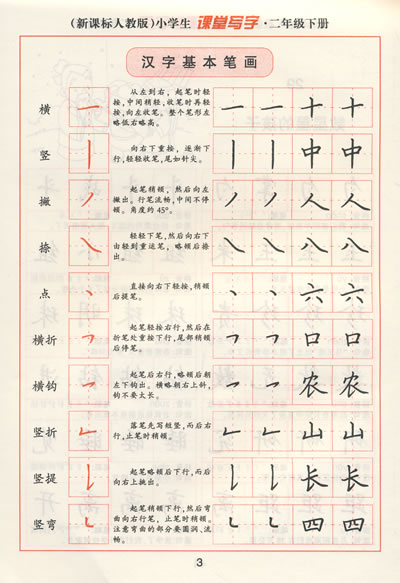 （新课标人教版）小学生 课堂写字·二年级下册
汉字基本笔画
横 一 从左到右，起笔时轻按，中间稍轻，收笔时再轻按，向左收笔。整个笔形左略低右略高。 一 一 十 十
竖 丨 向右下重按，逐渐下行，轻轻收笔，尾如针尖。 丨 丨 中 中
撇 丿 起笔稍顿，然后向左撇出。行笔流畅，中间不停顿。角度约45°。 丿 丿 人 人
捺 ㇏ 轻轻下笔，然后向右下由轻到重运笔，略顿后捺出。 八 八 八 八
点 丶 直接向右下轻按，稍顿后提笔。 丶 丶 六 六
横折 ㇕ 起笔轻按右行，然后在折笔处重按下行，尾部稍顿后停笔。 ㇕ ㇕ 口 口
横钩 ㇖ 起笔后右行，略顿后朝左下钩出。横略朝右上斜，钩不要太长。 ㇖ ㇖ 农 农
竖折 ㇗ 落笔先写短竖，而后右行，止笔时稍顿。 ㇗ ㇗ 山 山
竖提 ㇙ 起笔略顿后下行，而后向右上挑出。 ㇙ ㇙ 长 长
竖弯 ㇄ 起笔稍顿下行，然后弯曲向右行笔，止笔时稍顿。注意弯曲的部分要圆润、流畅。 ㇄ ㇄ 四 四
3